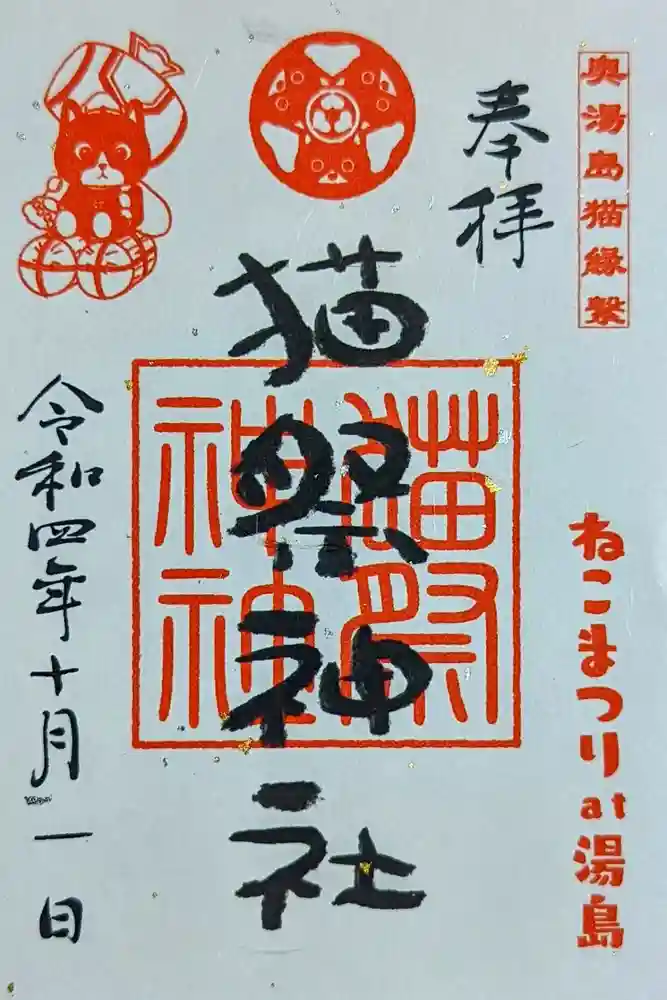 奥湯島猫縁繋
奉拝
猫祭神社
猫祭神神
令和四年十月一日
ねこまつりat湯島